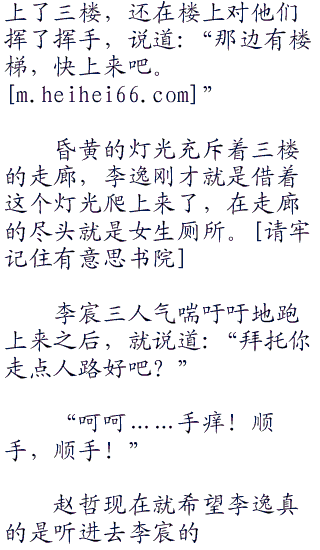 上了三楼，还在楼上对他们
挥了挥手，说道：“那边有楼
梯，快上来吧。
[m.heihei66.com]”
昏黄的灯光充斥着三楼
的走廊，李逸刚才就是借着
这个灯光爬上来了，在走廊
的尽头就是女生厕所。[请牢
记住有意思书院]
李宸三人气喘吁吁地跑
上来之后，就说道：“拜托你
走点人路好吧？”
“呵呵……手痒！顺
手，顺手！”
赵哲现在就希望李逸真
的是听进去李宸的